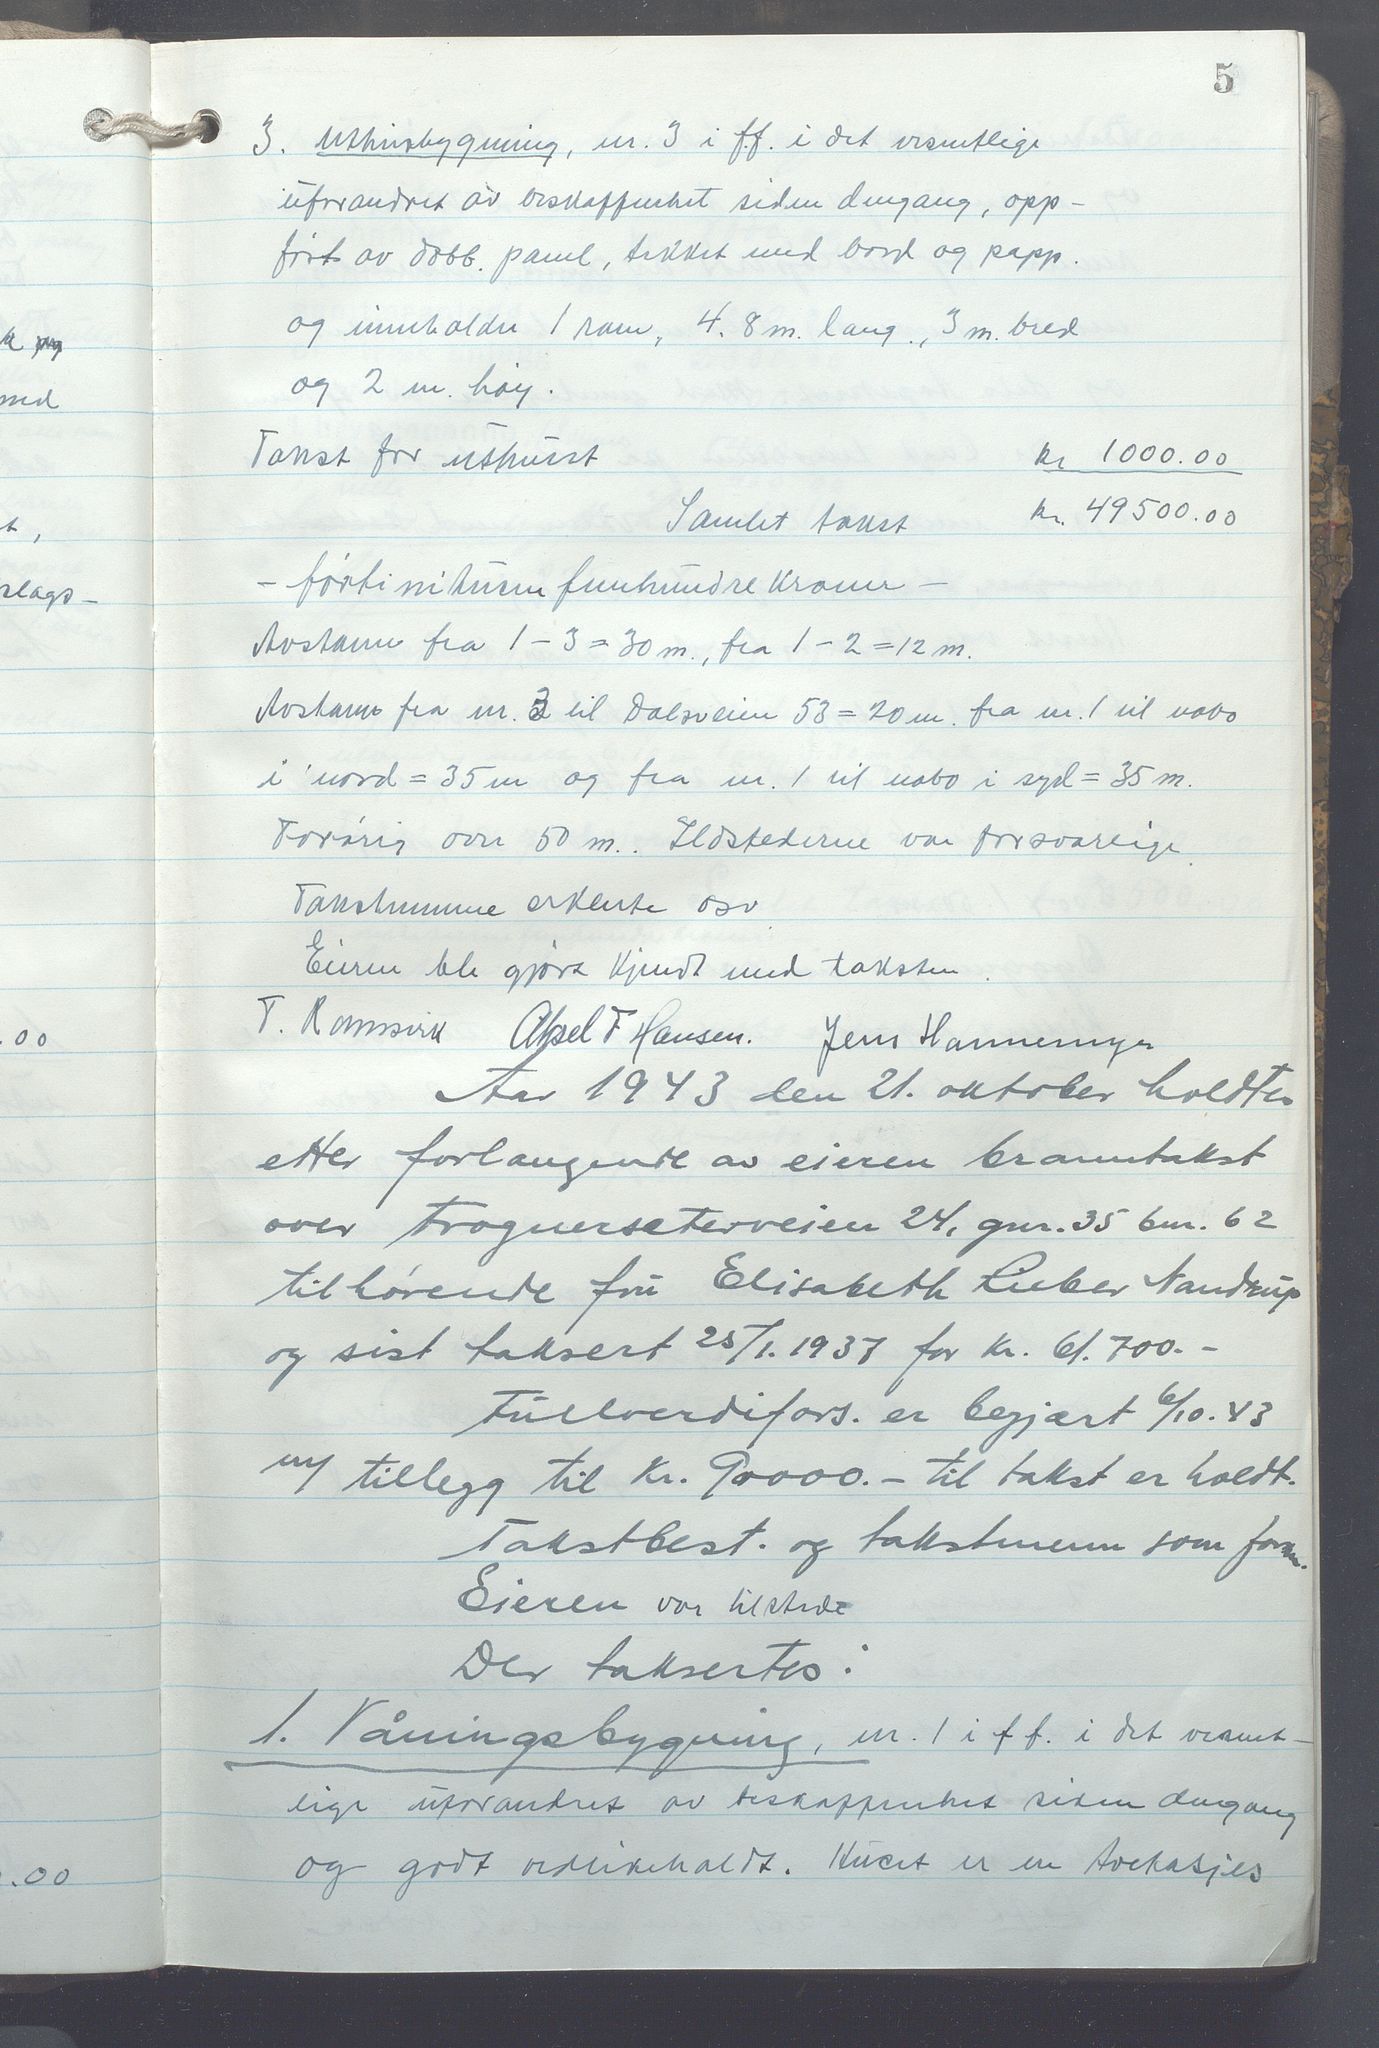 5
3. Uthusbygning, nr. 3 i f.f. i det vesentlige
uforandret av beskaffenhet siden dengang, opp-
ført av dobb. panel, tekket med bord og papp.
og inneholder 1 rom, 4.8 m. lang., 3 m. bred
og 2 m. høy.
Takst for uthuset kr 1000.00
Samlet takst kr. 49500.00
- førtinitusen femhundre kroner -
Avstann fra 1-3=30 m., fra 1-2=12 m.
Avstann fra nr. til Dalsveien 53=20 m. fra nr. 1 til nabo
i nord=35 m og fra nr. 1 til nabo i syd=35 m.
Forøvrig over 50 m.. Ildstederne var forsvarlige.
Takstmennene erklærte osv
Eieren ble gjort kjendt med taksten.
T. Aksel F Hansen. Jens Hannemyr
Aar 1943 den 21. oktober holdtes
etter forlangende av eieren branntakst
over Frognerseterveien 24, gnr. 35 bnr. 62
tilhørende fru Elisabeth Nandrup
og sist taksert 25/1. 1937 for kr. 61.700.-
Fullverdifors. er begjært 6/10. 43
m/ tillegg til kr. 90000.- til takst er holdt.
Takstbest. og takstmenn som forrn.
Eieren var tilstede
Der taksertes:
1. Våningsbygning, nr. 1 i f.f. i det vesent-
lige uforandret av beskaffenhet siden dengang
og godt vedlikeholdt. Huset er en toetasjes
k og
med
t,
slags-
.00
.00